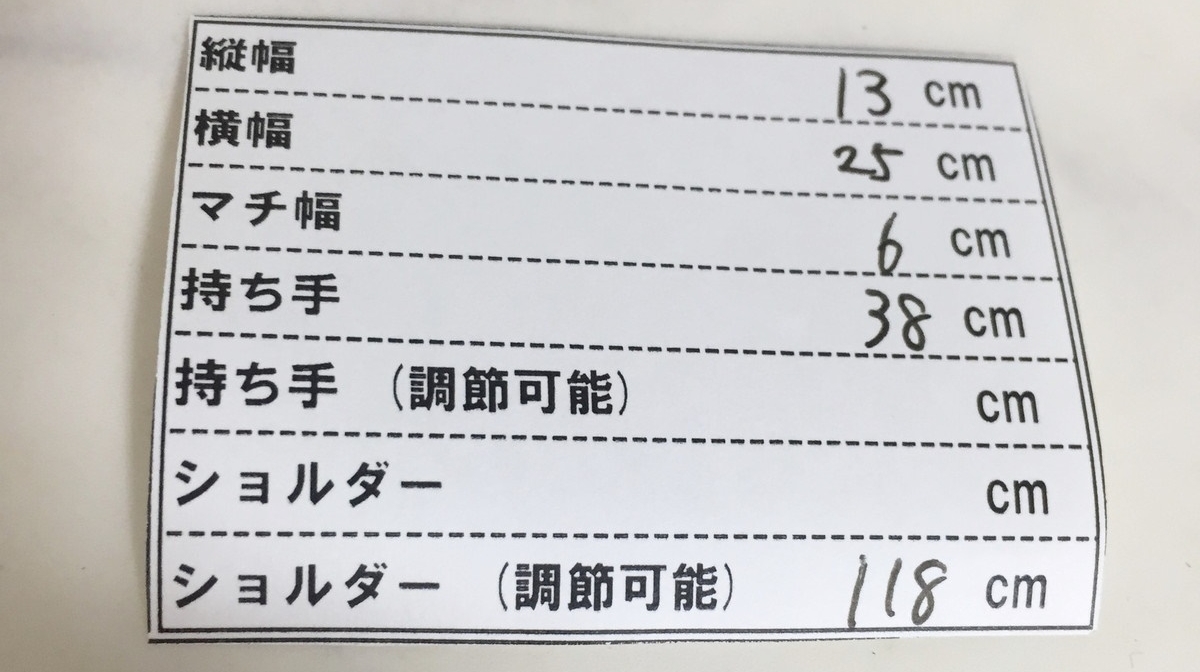 縦幅 13 cm
横幅 25 cm
マチ幅 6 cm
持ち手 38 cm
持ち手 (調節可能) cm
ショルダー cm
ショルダー (調節可能) 118 cm